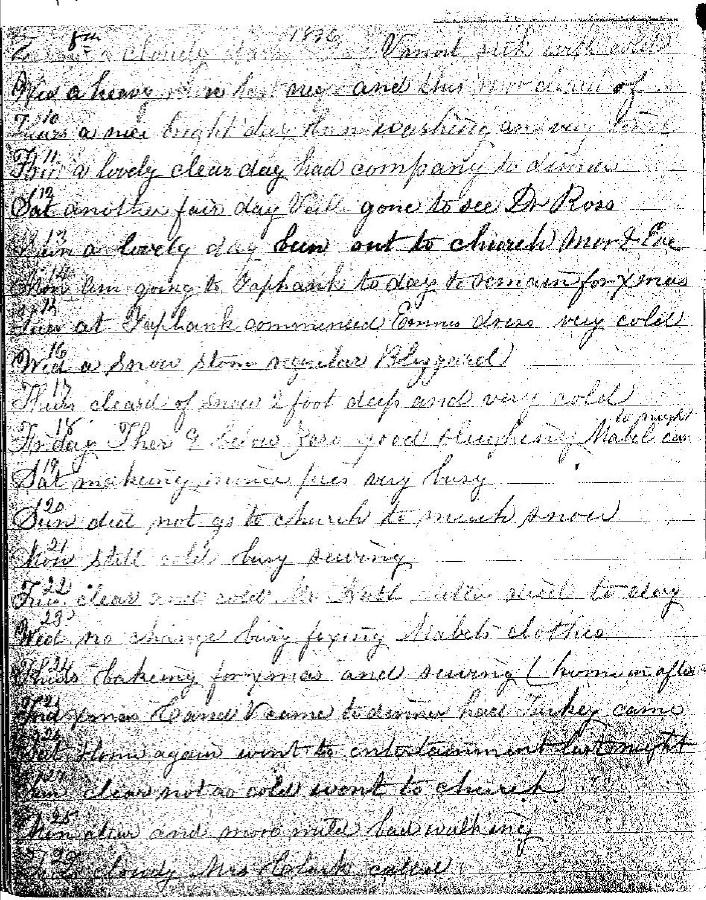 1896
8th a cloudy sick with cold
Wed a heavy rain last and this mor cleard of
10 Thurs a nice bright day washing am very
11 a lovely clear day had company to dinner
12 Sat another fair day gone to see Dr Ross
13 Sun a lovely day been out to church Mor & Eve
14 Mon Am going to Yaphank to day to remain for Xmas
15 Tues at Yaphank commenced Emmas dress very cold
16 Wed a Snow storm regular Blizzard
17 Thurs cleard of snow 2 foot deep and very cold
to night
18 Friday Ther 9 below zero good sleighing Mabel
19 Sat makeing mince pies very busy
20 Sun did not go to church to much snow
21 Mon still cold busy sewing
22 Tues clear and cold Mr died to day
23 Wed no change busy fixing Mabels clothes
24 Thurs bakeing for xmas and sewing
25 xmas and V came to dinner had Turkey came
26 Sat Home again went to entertainment last night
27 Sun clear not so cold went to church
28 Mon clear and more mild bad walking
29 cloudy Mrs Clark called